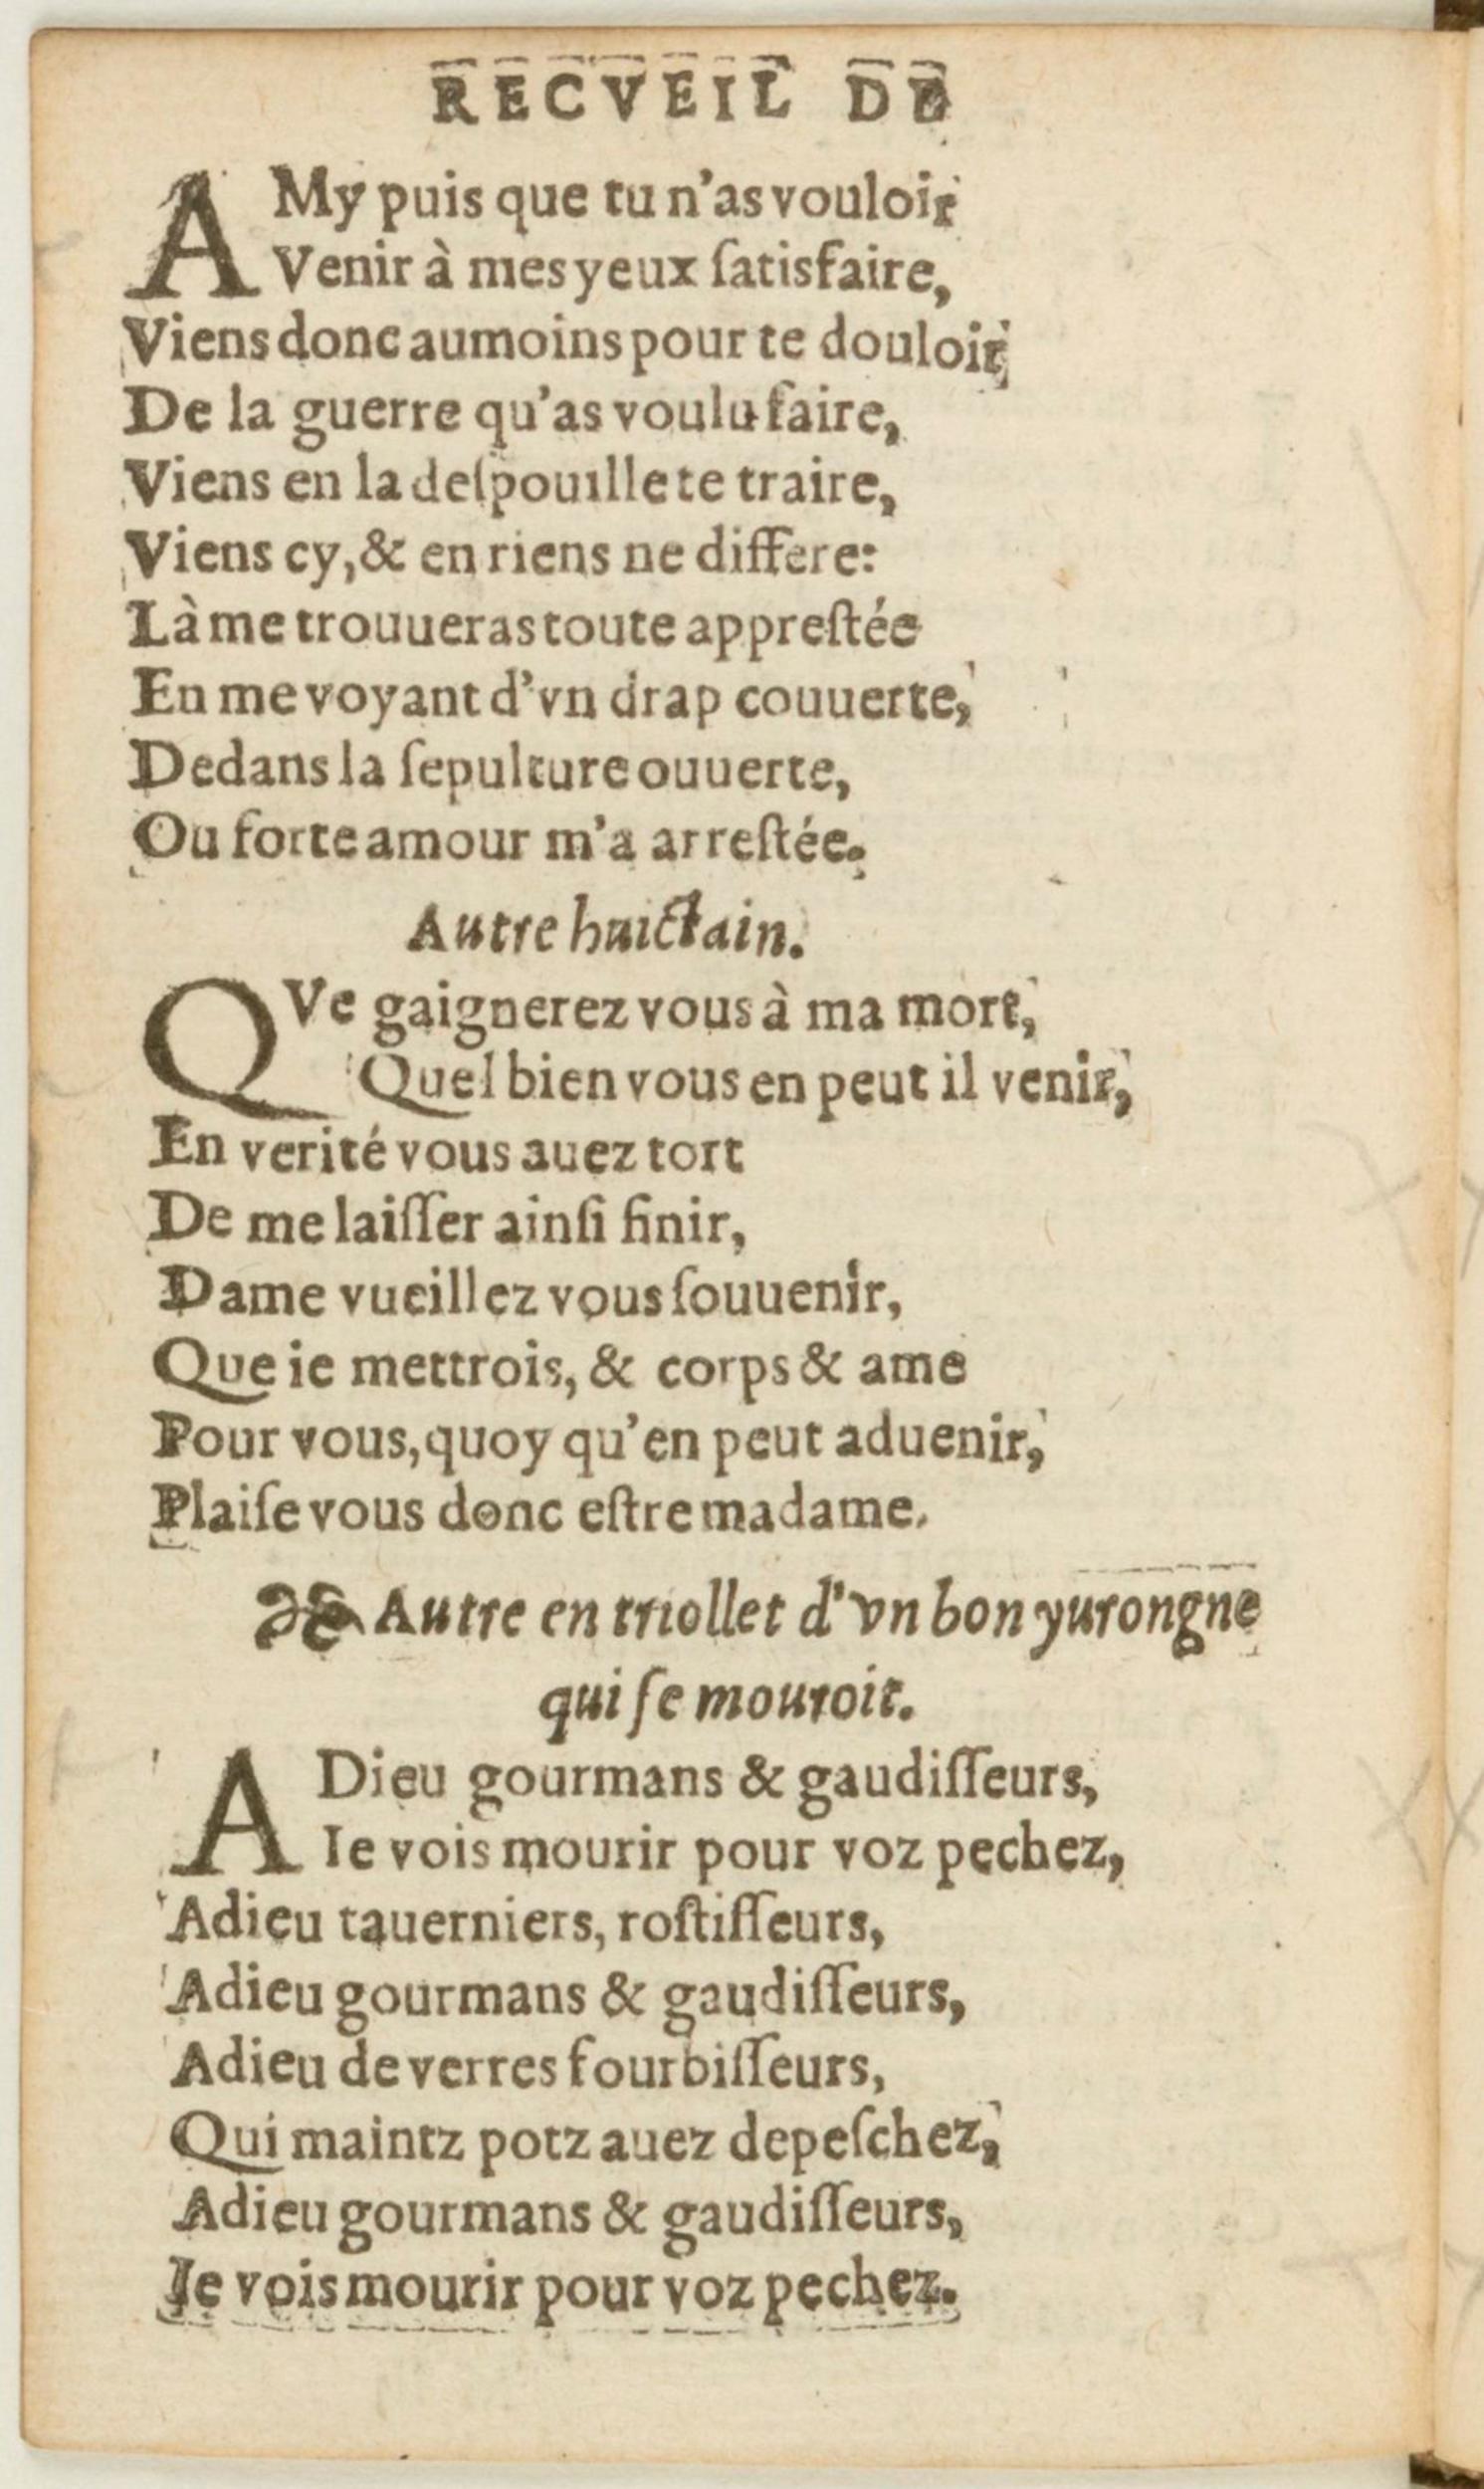 RECVEIL DE
AMy puis que tu n'as vouloir
Venir à mes yeux ſatisfaire,
Viens donc aumoins pour te douloir,
De la guerre qu'as voulu faire,
Viens en la deſpouille te traire,
Viens cy, & en riens ne differe:
Là me trouueras toute appreſtée
En me voyant d'vn drap couuerte,
Dedans la ſepulture ouuerte,
Ou forte amour m'a arreſtée.
Autre huictain.
QVe gaignerez vous à ma mort,
Quel bien vous en peut il venir,
En verité vous auez tort
De me laiſſer ainſi finir,
Dame vueillez vous ſouuenir,
Que ie mettrois, & corps & ame
Pour vous, quoy qu'en peut aduenir,
Plaiſe vous donc eſtre madame.
Autre en triollet d'vn bon yurongne
qui ſe mouroit.
ADieu gourmans & gaudiſſeurs,
Ie vois mourir pour voz pechez,
Adieu tauerniers, roſtiſſeurs,
Adieu gourmans & gaudiſſeurs,
Adieu de verres fourbiſſeurs,
Qui maintz potz auez depeſchez,
Adieu gourmans & gaudiſſeurs,
Ie vois mourir pour voz pechez.